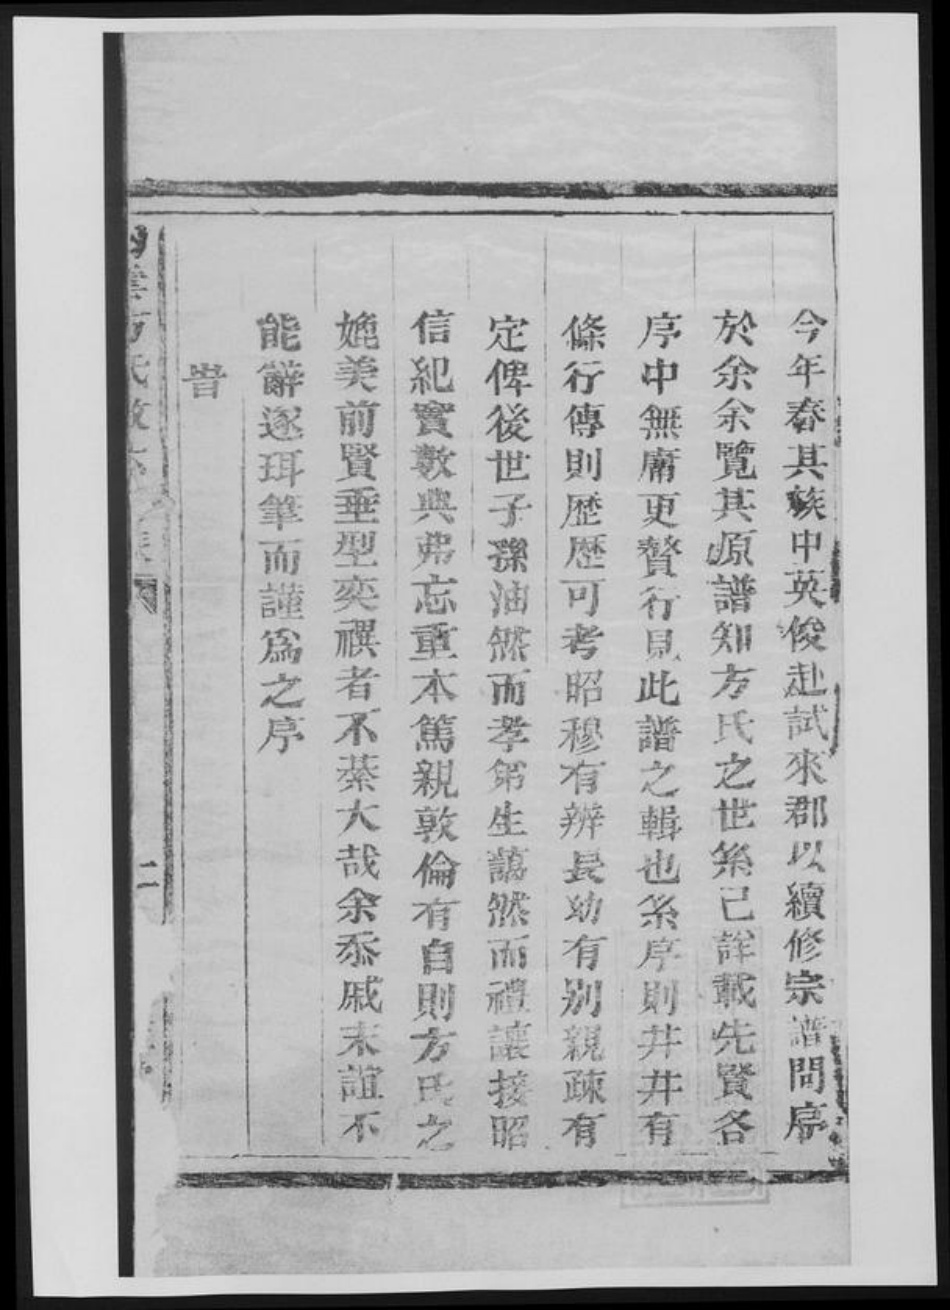 今年春其族中英俊赴試來郡以續修宗譜問序
於余余覽其原譜知方氏之世系已詳載先賢各
序中無庸更贅行見此譜之輯也系序則井井有
條行傳則歷歷可考昭穆有辨長幼有别親疎有
定俾後世子孫油然而孝弟生藹然而禮讓接昭
信紀實數典弗忘重本篤親敦倫有自則方氏之
媲美前賢垂型奕禩者不綦大哉余忝戚末誼不
能辭遂珥筆而謹為之序
旹
方氏
二